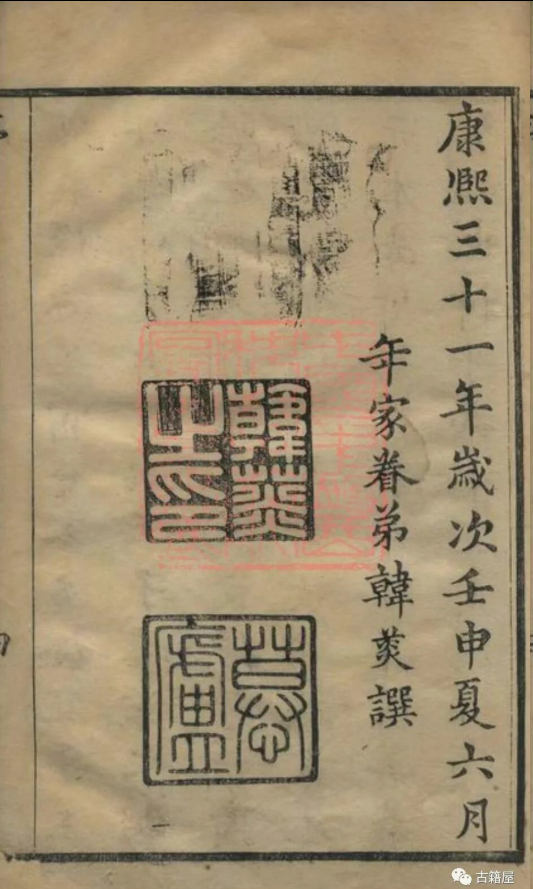 康熙三十一年嵗次壬申夏六月
年家眷弟韓菼譔
韓菼之印
慕廬
古籍屋